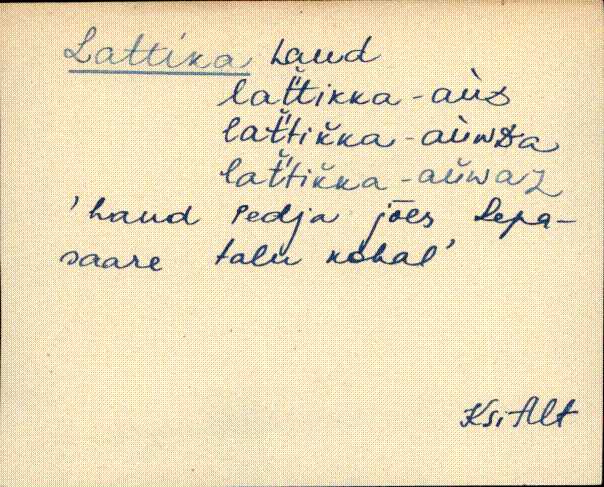 Lattika haud
lat̆tikka-aùs
lat̆tik̆ka-aùwDa
lat̆tik̆ka-aŭwaz
'haud Pedja jões Lepa-
saare talu kohal'
Ksi Alt